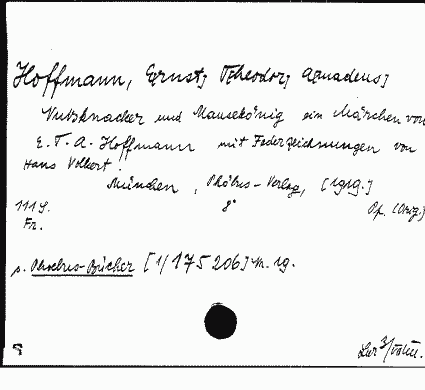 Hoffmann, Ernst] Theodor] Amadeus]
Nutzknacker und Mausekönig ein Märchen von
E. T. A. Hoffmann mit Federzeichnungen von
Hans Volkert.
München, Phöbus-Verlag, [1919.]
111 S. 8°
Fr.
s. Phoebus-Bücher [1/175 206] 19.